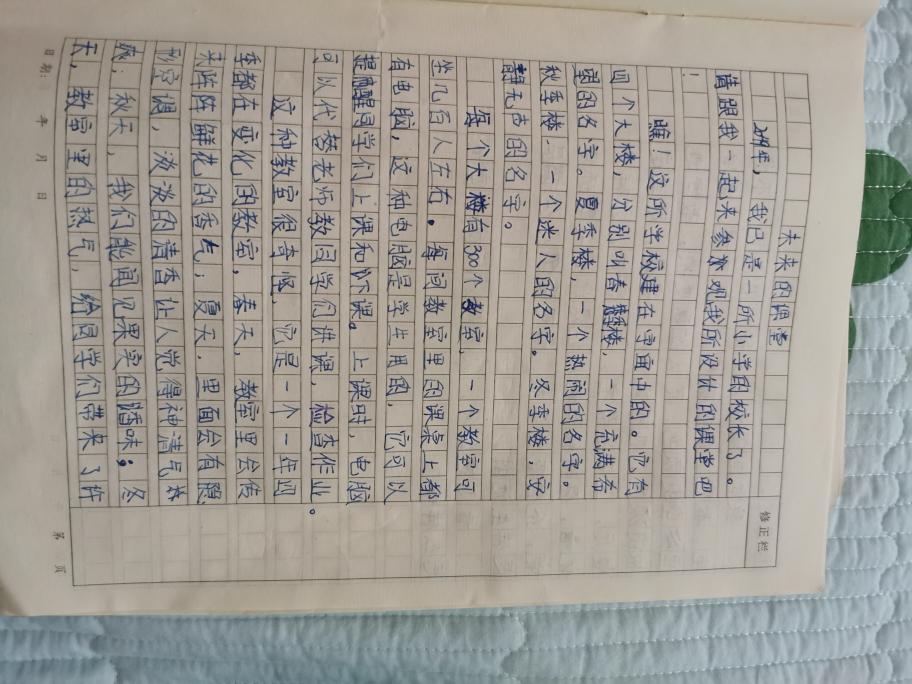 未来的课堂
我已是一所小学的校长了。
请跟我一起来参观我所设计的课堂吧
!
瞧!这所学校建在宇宙中的。它有
四个大楼,分别叫春季楼,一个充满希
望的名字。夏季楼,一个热闹的名字。
秋季楼,一个迷人的名字。冬季楼,安
静无声的名字。
每个大楼有300个教室,一个教室可
坐几百人左右。每间教室里的课桌上都
有电脑,这种电脑是学生用的,它可以
提醒同学们上课和下课。上课时,电脑
可以代替老师教同学们讲课,检查作业。
这种教室很奇怪,它是一个一年四
季都在变化的教室。春天,教室里会传
来阵阵鲜花的香气;夏天,里面会有隐
形空调,淡淡的清香让人觉得神清气爽
爽;秋天,我们能闻见果实的香味;冬
天,教室里的热气,给同学们带来了许
修正栏
日期: 年 月 日
第 页